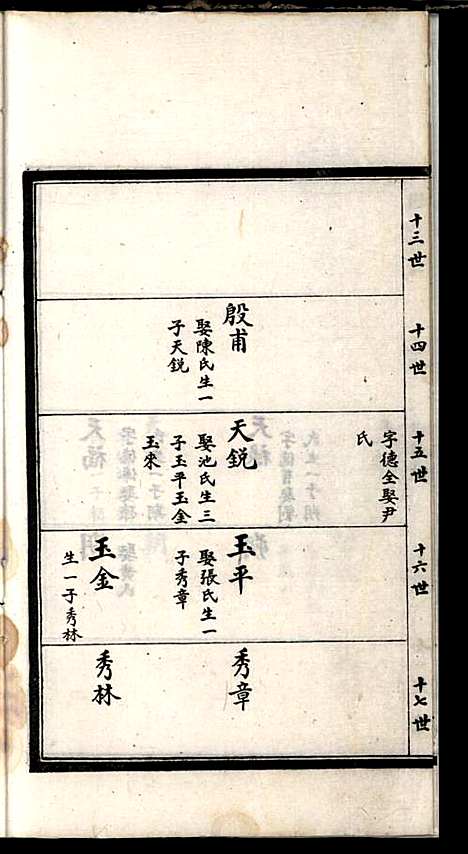 十三世
十四世
殷甫
娶陳氏生一
子天銳
十五世
字德全娶尹
氏
天銳
娶池氏生三
子玉平玉金
玉來
十六世
玉平
娶張氏生一
子秀章
玉金
生一子秀林
十七世
秀章
秀林